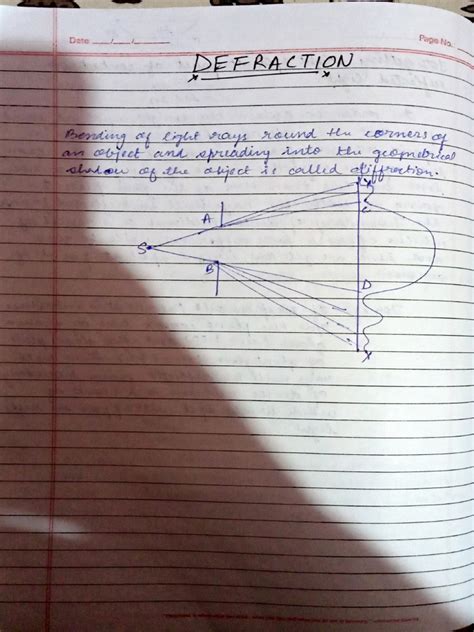 Date __/__/__
Page No.
DEFRACTION
Bending of light rays round the corners of
an object and spreading into the geometrical
shadow of the object is called diffraction.
X
C
A
S
B
D
Y